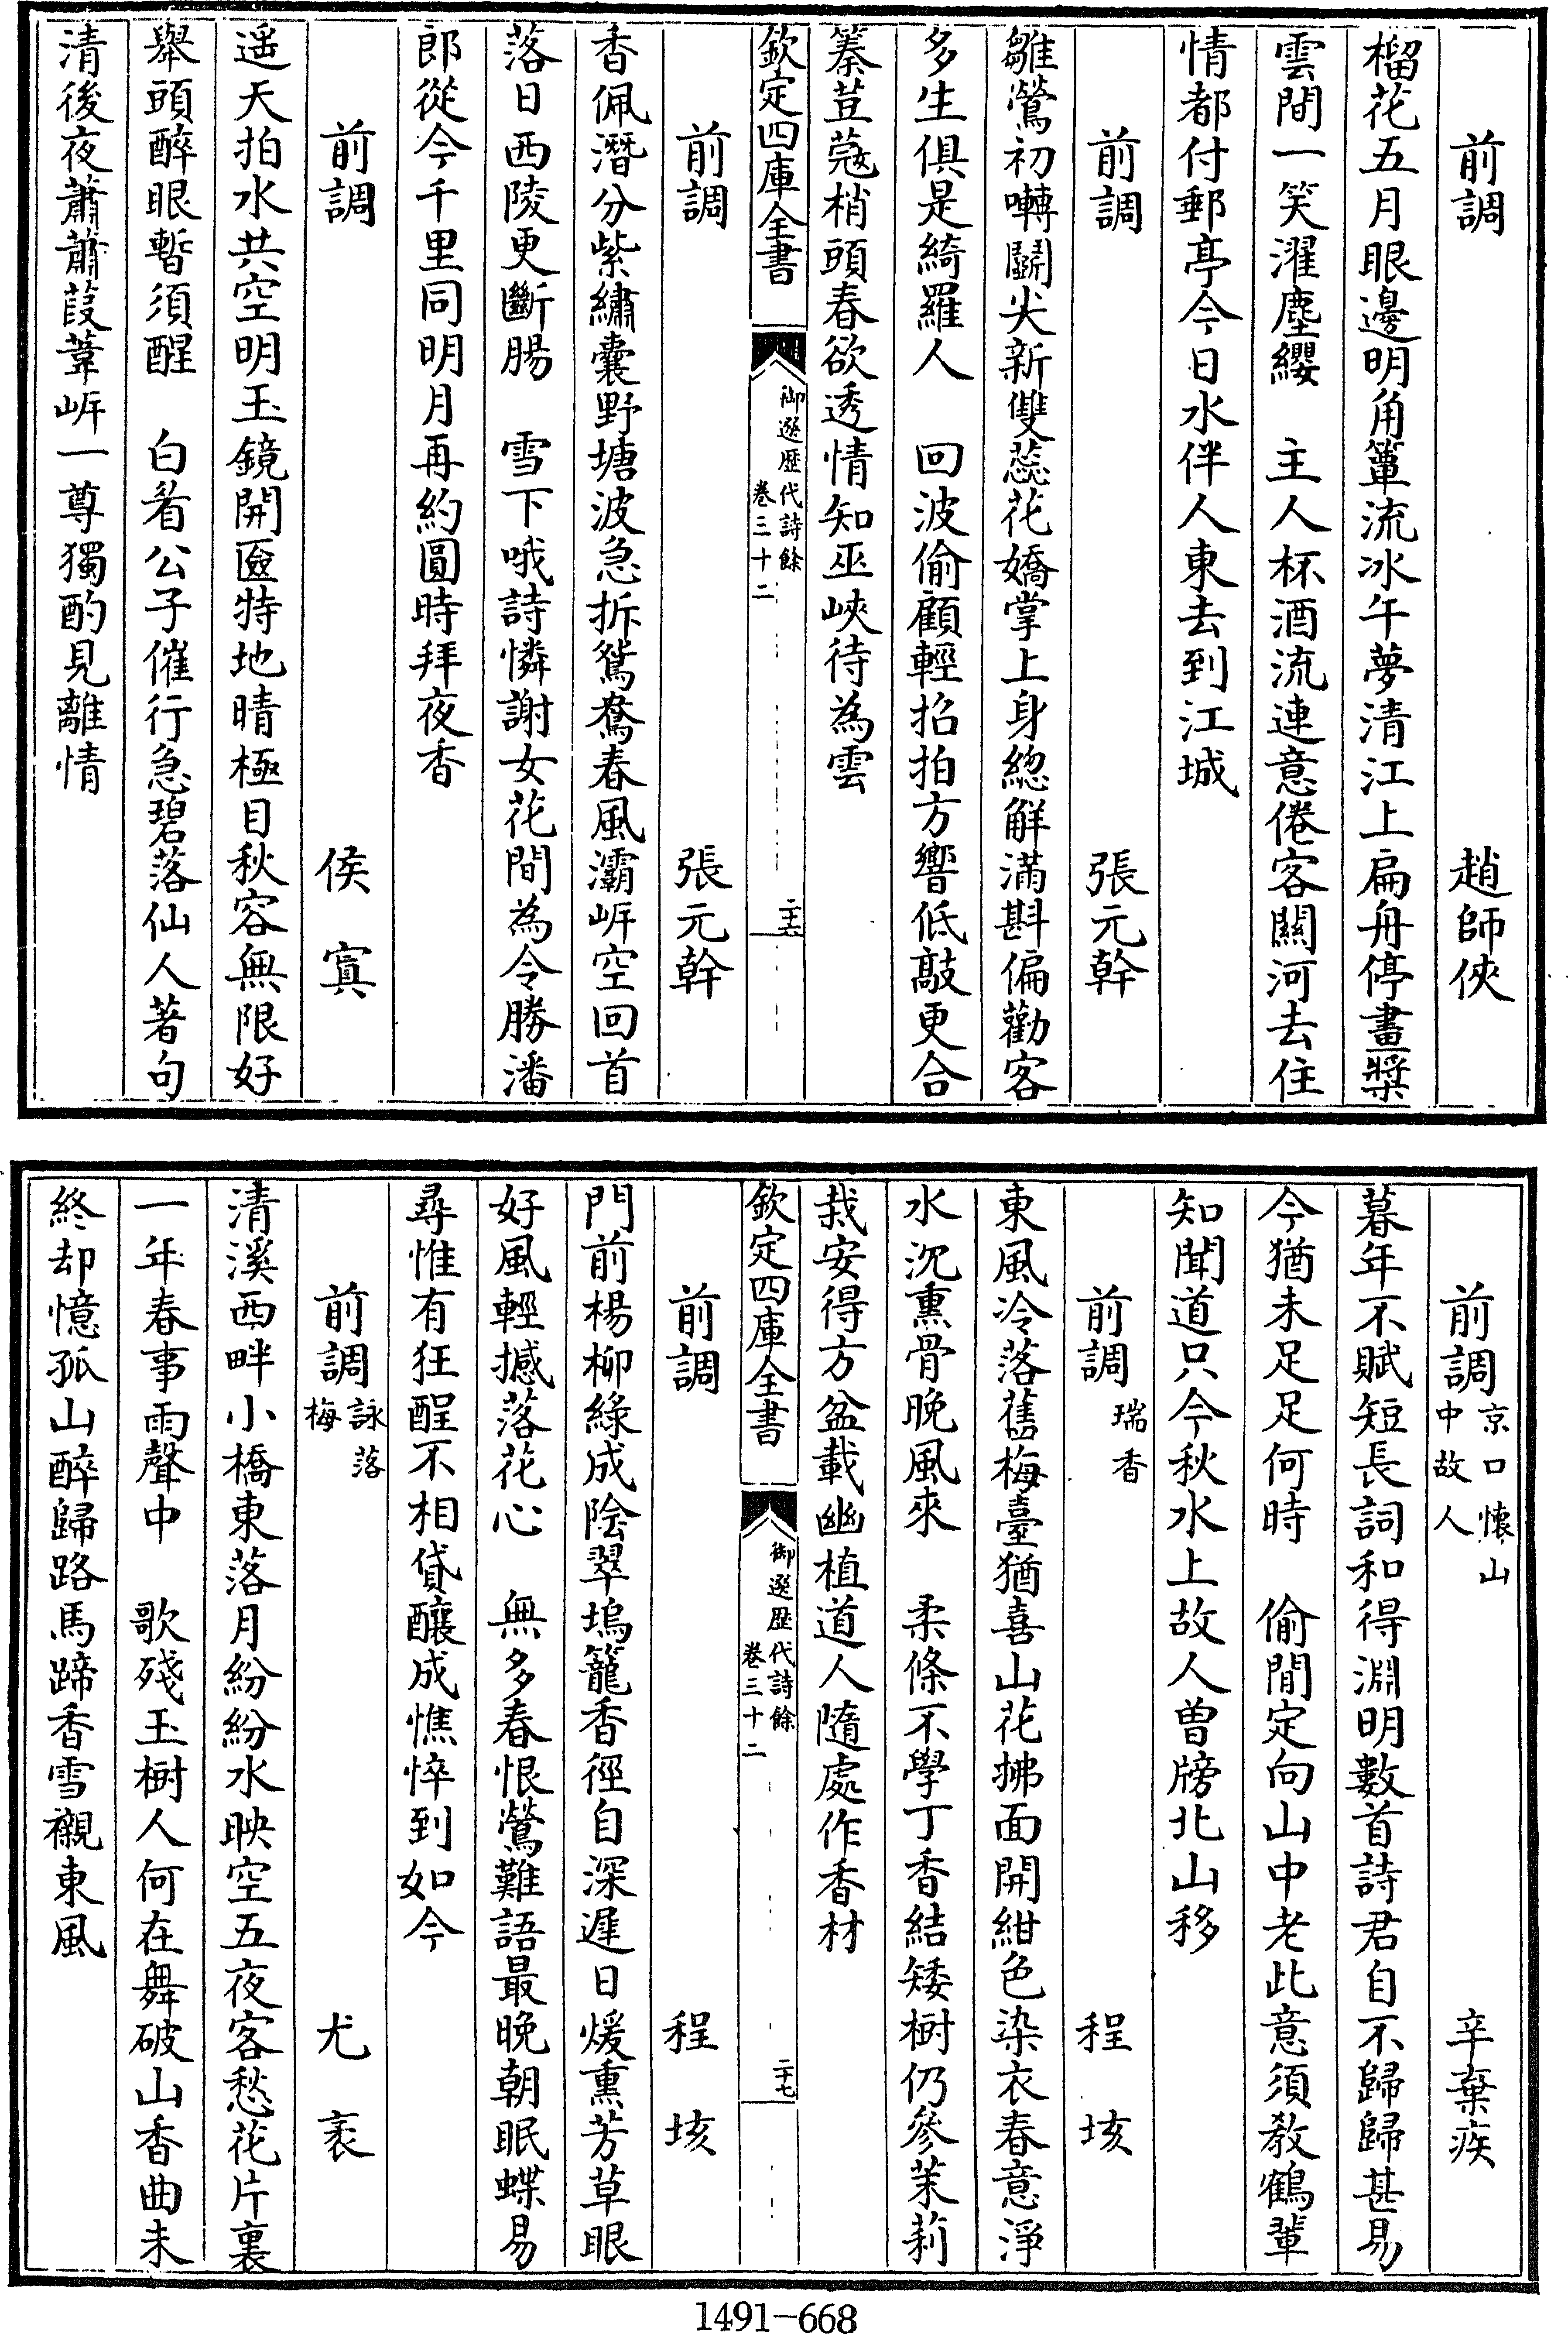 前調　趙師俠
榴花五月眼邊明角簟流冰午夢清江上扁舟停畫槳
雲間一笑濯塵纓　主人杯酒流連意倦客關河去住
情都付郵亭今日水伴人東去到江城
前調　張元幹
雛鶯初囀鬭尖新雙蕊花嬌掌上身總解滿斟偏勸客
多生俱是綺羅人　回波偷顧輕招拍方響低敲更合
蓁荳蔻梢頭春欲透情知巫峽待為雲
欽定四庫全書　御選歷代詩餘　卷三十二　二十六
前調　張元幹
香佩潛分紫繡囊野塘波急拆鴛鴦春風灞岸空回首
落日西陵更斷腸　雪下哦詩憐謝女花間為令勝潘
郎從今千里同明月再約圓時拜夜香
前調　侯寘
遥天拍水共空明玉鏡開匳特地晴極目秋容無限好
舉頭醉眼暫須醒　白眉公子催行急碧落仙人著句
清後夜蕭蕭葭葦岸一尊獨酌見離情
前調京口懷山中故人　辛棄疾
暮年不賦短長詞和得淵明數首詩君自不歸歸甚易
今猶未足足何時　偷閒定向山中老此意須教鶴輩
知聞道只今秋水上故人曾牓北山移
前調瑞香　程垓
東風冷落舊梅臺猶喜山花拂面開紺色染衣春意淨
水沉熏骨晚風來　柔條不學丁香結矮樹仍參茉莉
栽安得方盆載幽植道人隨處作香材
欽定四庫全書　御選歷代詩餘　卷三十二　二十七
前調　程垓
門前楊柳綠成陰翠塢籠香徑自深遲日煖熏芳草眼
好風輕撼落花心　無多春恨鶯難語最晚朝眠蝶易
尋惟有狂酲不相貸釀成憔悴到如今
前調詠落梅　尤袤
清溪西畔小橋東落月紛紛水映空五夜客愁花片裏
一年春事雨聲中　歌殘玉樹人何在舞破山香曲未
終却憶孤山醉歸路馬蹄香雪襯東風
1491-668